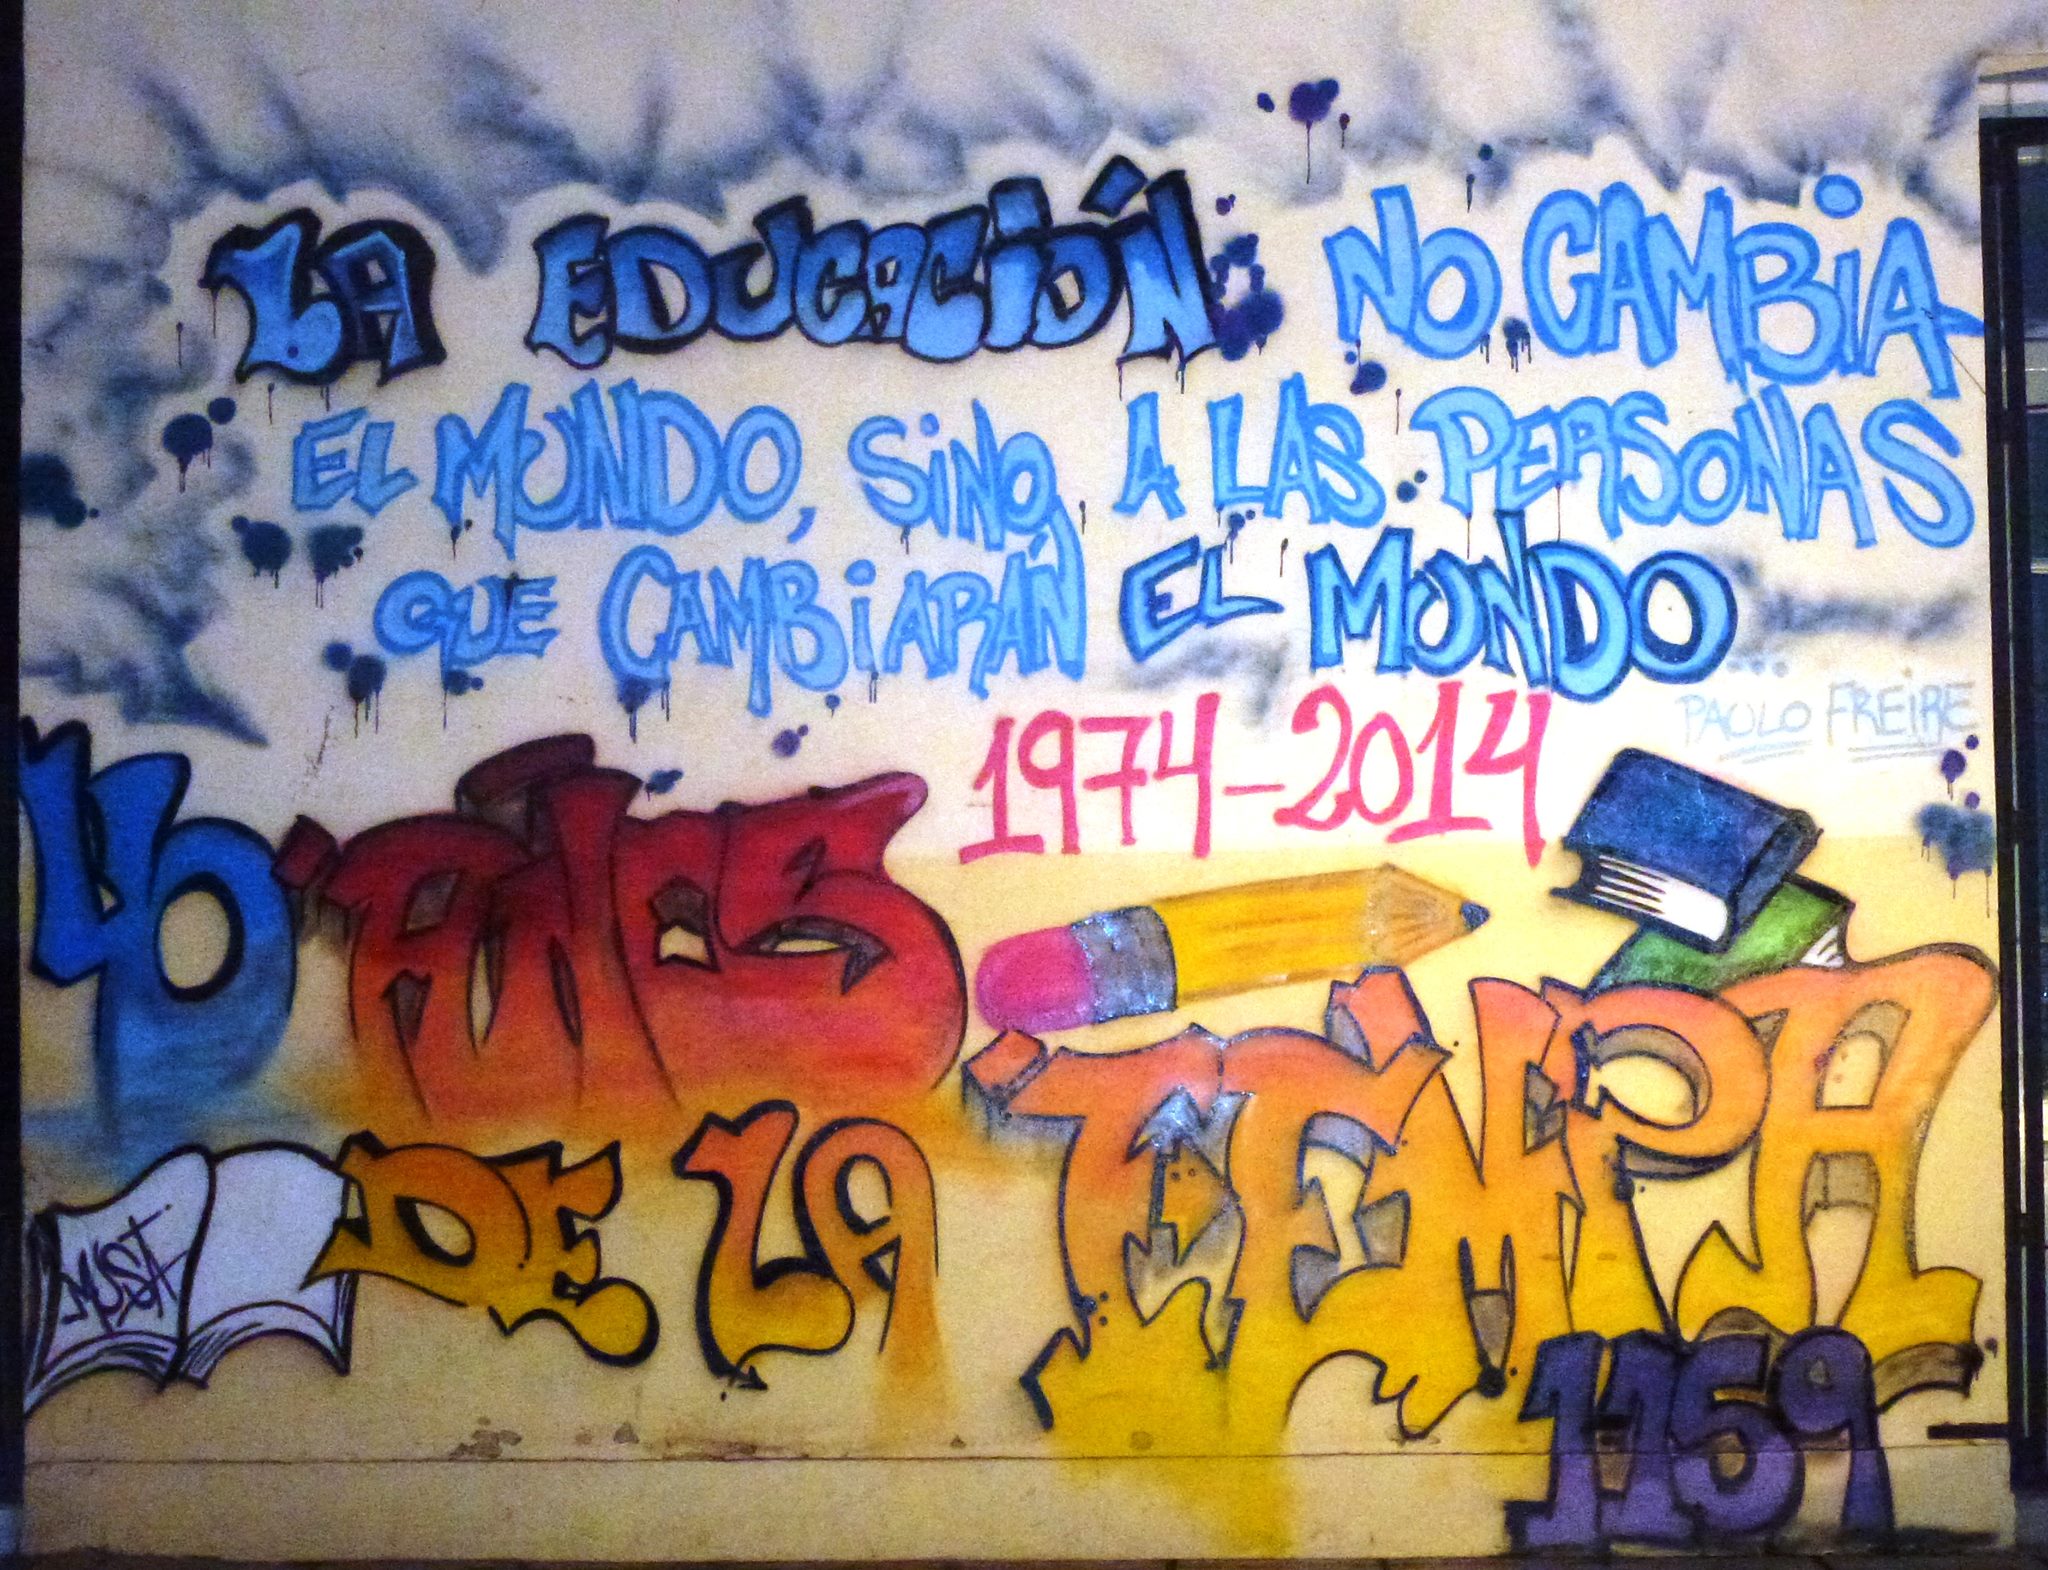 LA EDUCACIÓN NO CAMBIA
EL MUNDO, SINO A LAS PERSONAS
QUE CAMBIARÁN EL MUNDO
PAULO FREIRE
1974-2014
40 AÑOS
DE LA TEMPA
MUSA
1159